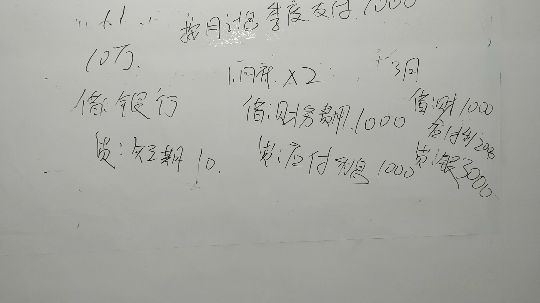 1.1.
按月计提季度支付.1000
10万.
1.2月 X2
3月
借:银行
借:财务费用.1000
借:财1000
应付利2000
贷:短期 10.
贷:应付利息 1000
贷:银3000